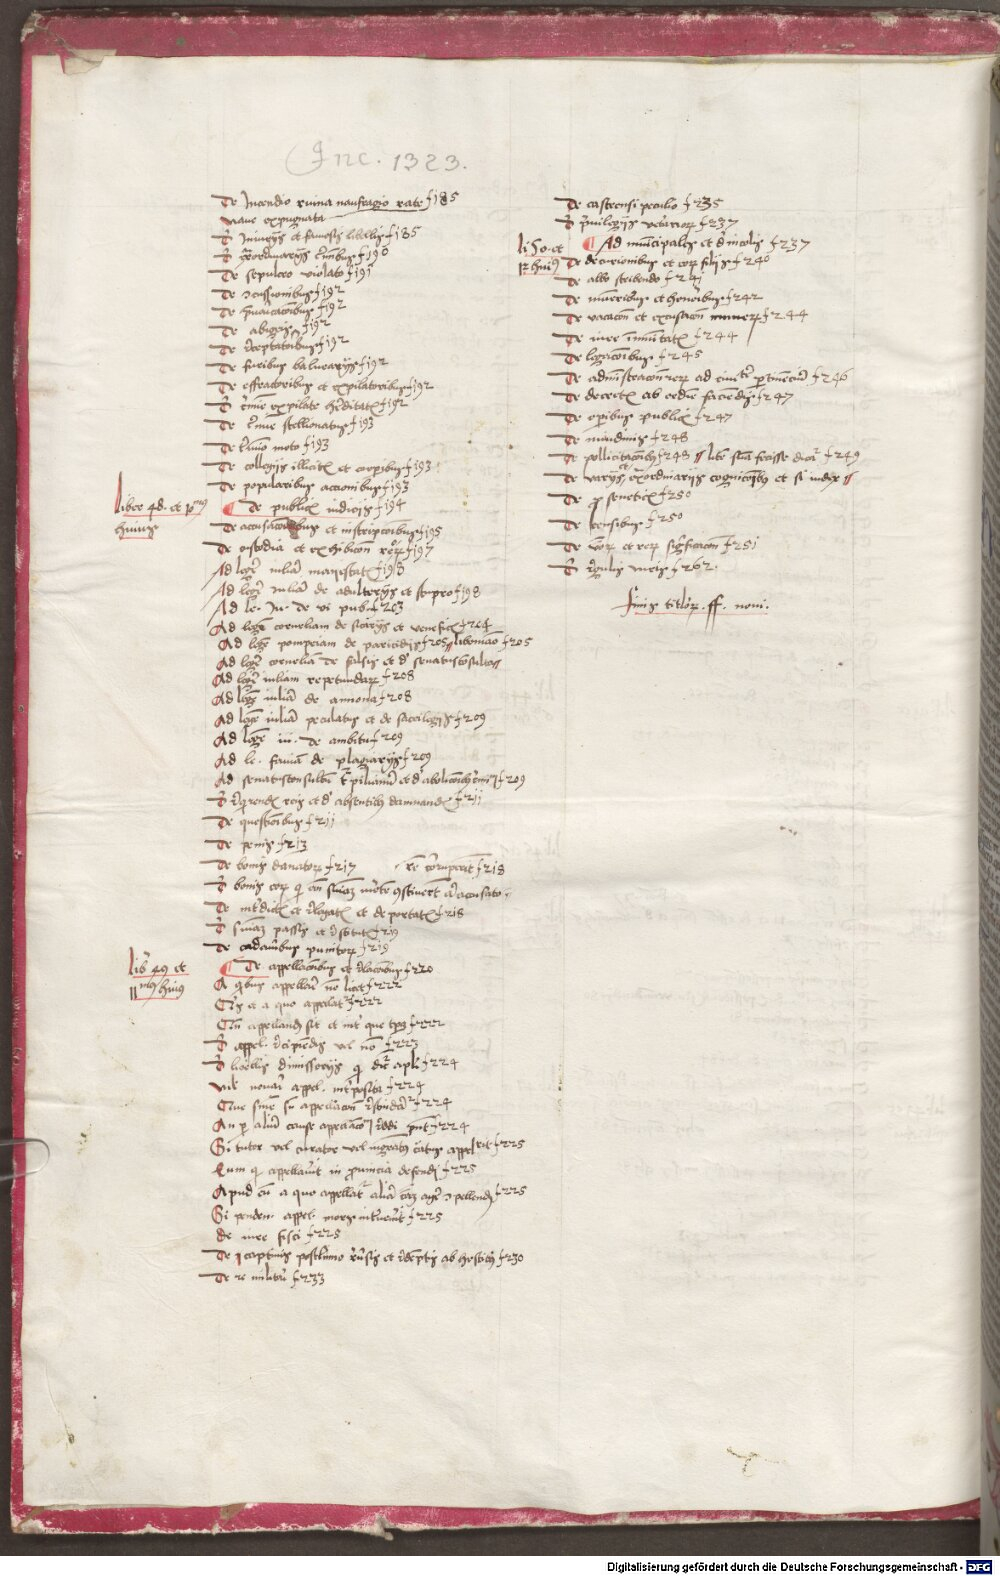 Inc. 1323.
De Incendio ruina naufragio rate f 185
naue expugnata
D Iniurijs et famosis libellis f 185
D extraordinarijs criminibus f 190
De sepulcro violato f 191
De concussionibus f 192
De preuaricacionibus f 192
De abigeis f 192
De receptatoribus f 192
De furibus balnearijs f 192
De effractoribus et expilatoribus f 192
D crimine expilate hereditatis f 192
De crimine stellionatus f 193
De termino moto f 193
De collegijs illicitis et corporibus f 193
De popularibus accionibus f 193
liber 48. et
huius
De publicis iudicijs f 194
De accusacionibus et inscripcionibus f 195
De custodia et exhibicion reorum f 197
Ad legem iuliam maiestatis f 198
Ad legem iuliam de adulterijs et stupro f 198
Ad le. Iu. de vi pub. f 203
Ad legem corneliam de sicarijs et veneficis f 204
Ad legem pompeiam de paricidijs f 205 f 205
Ad legem corneliam de falsis et de senatusconsulto
Ad legem iuliam repetundarum f 208
Ad legem iuliam de annona f 208
Ad legem iuliam peculatus et de sacrilegijs f 209
Ad legem iu. de ambitu f 209
Ad le. fauiam de plagiarijs f 209
Ad senatusconsultum turpilianum et de f 209
D requirendis reis et de absentibus damnandis f 211
De questionibus f 211
De penis f 213
De bonis danatorum f 217 f 218
D bonis eorum qui accusato
De interdictis et relegatis et deportatis f 218
D sententiam passis et restitutis f 219
De cadaueribus punitorum f 219
lib 49 et
huius
De appellacionibus et relacionibus f 220
A quibus appellari non licet f 222
Quis et a quo appelatur f 222
Cum appellandum sit et inter que tempora f 222
D appel. recipiendis vel non f 223
D libellis dimissorijs qui dicuntur apli f 224
nil nouari appel. interposita f 224
Que sine f 224
An per alium cause appellacionum reddi possunt f 224
Si tutor vel curator vel magistratus creatus appellauerit f 225
Eum qui appellauerit in prouincia defendi f 225
Apud eum a quo appellatur aliam causam agere compellendum f 225
Si penden. appel. mors interuenerit f 225
De iure fisci f 225
De captiuis postliminio reuersis et redemptis ab hostibus f 230
De re militari f 233
De castrensi peculio f 235
D priuilegijs veteranorum f 237
li 50. et
12 huius
Ad municipales et de incolis f 237
De decurionibus et eorum filijs f 240
De albo scribendo f 241
De muneribus et honoribus f 242
De vacacione et excusacione munerum f 244
De iure immunitatis f 244
De legacionibus f 245
De administracione rerum ad ciuitatem pertinencium f 246
De decretis ab ordine faciendis f 247
De operibus publicis f 247
De nundinis f 248
De pollicitacionibus f 248 litem suam fecisse dicatur f 249
De varijs et extraordinarijs cognicionibus et si iudex
De proxeneticis f 250
De censibus f 250
De verborum et rerum significacione f 251
D regulis iuris f 262.
finis titulorum. ff. noui.
Digitalisierung gefördert durch die Deutsche Forschungsgemeinschaft - DFG